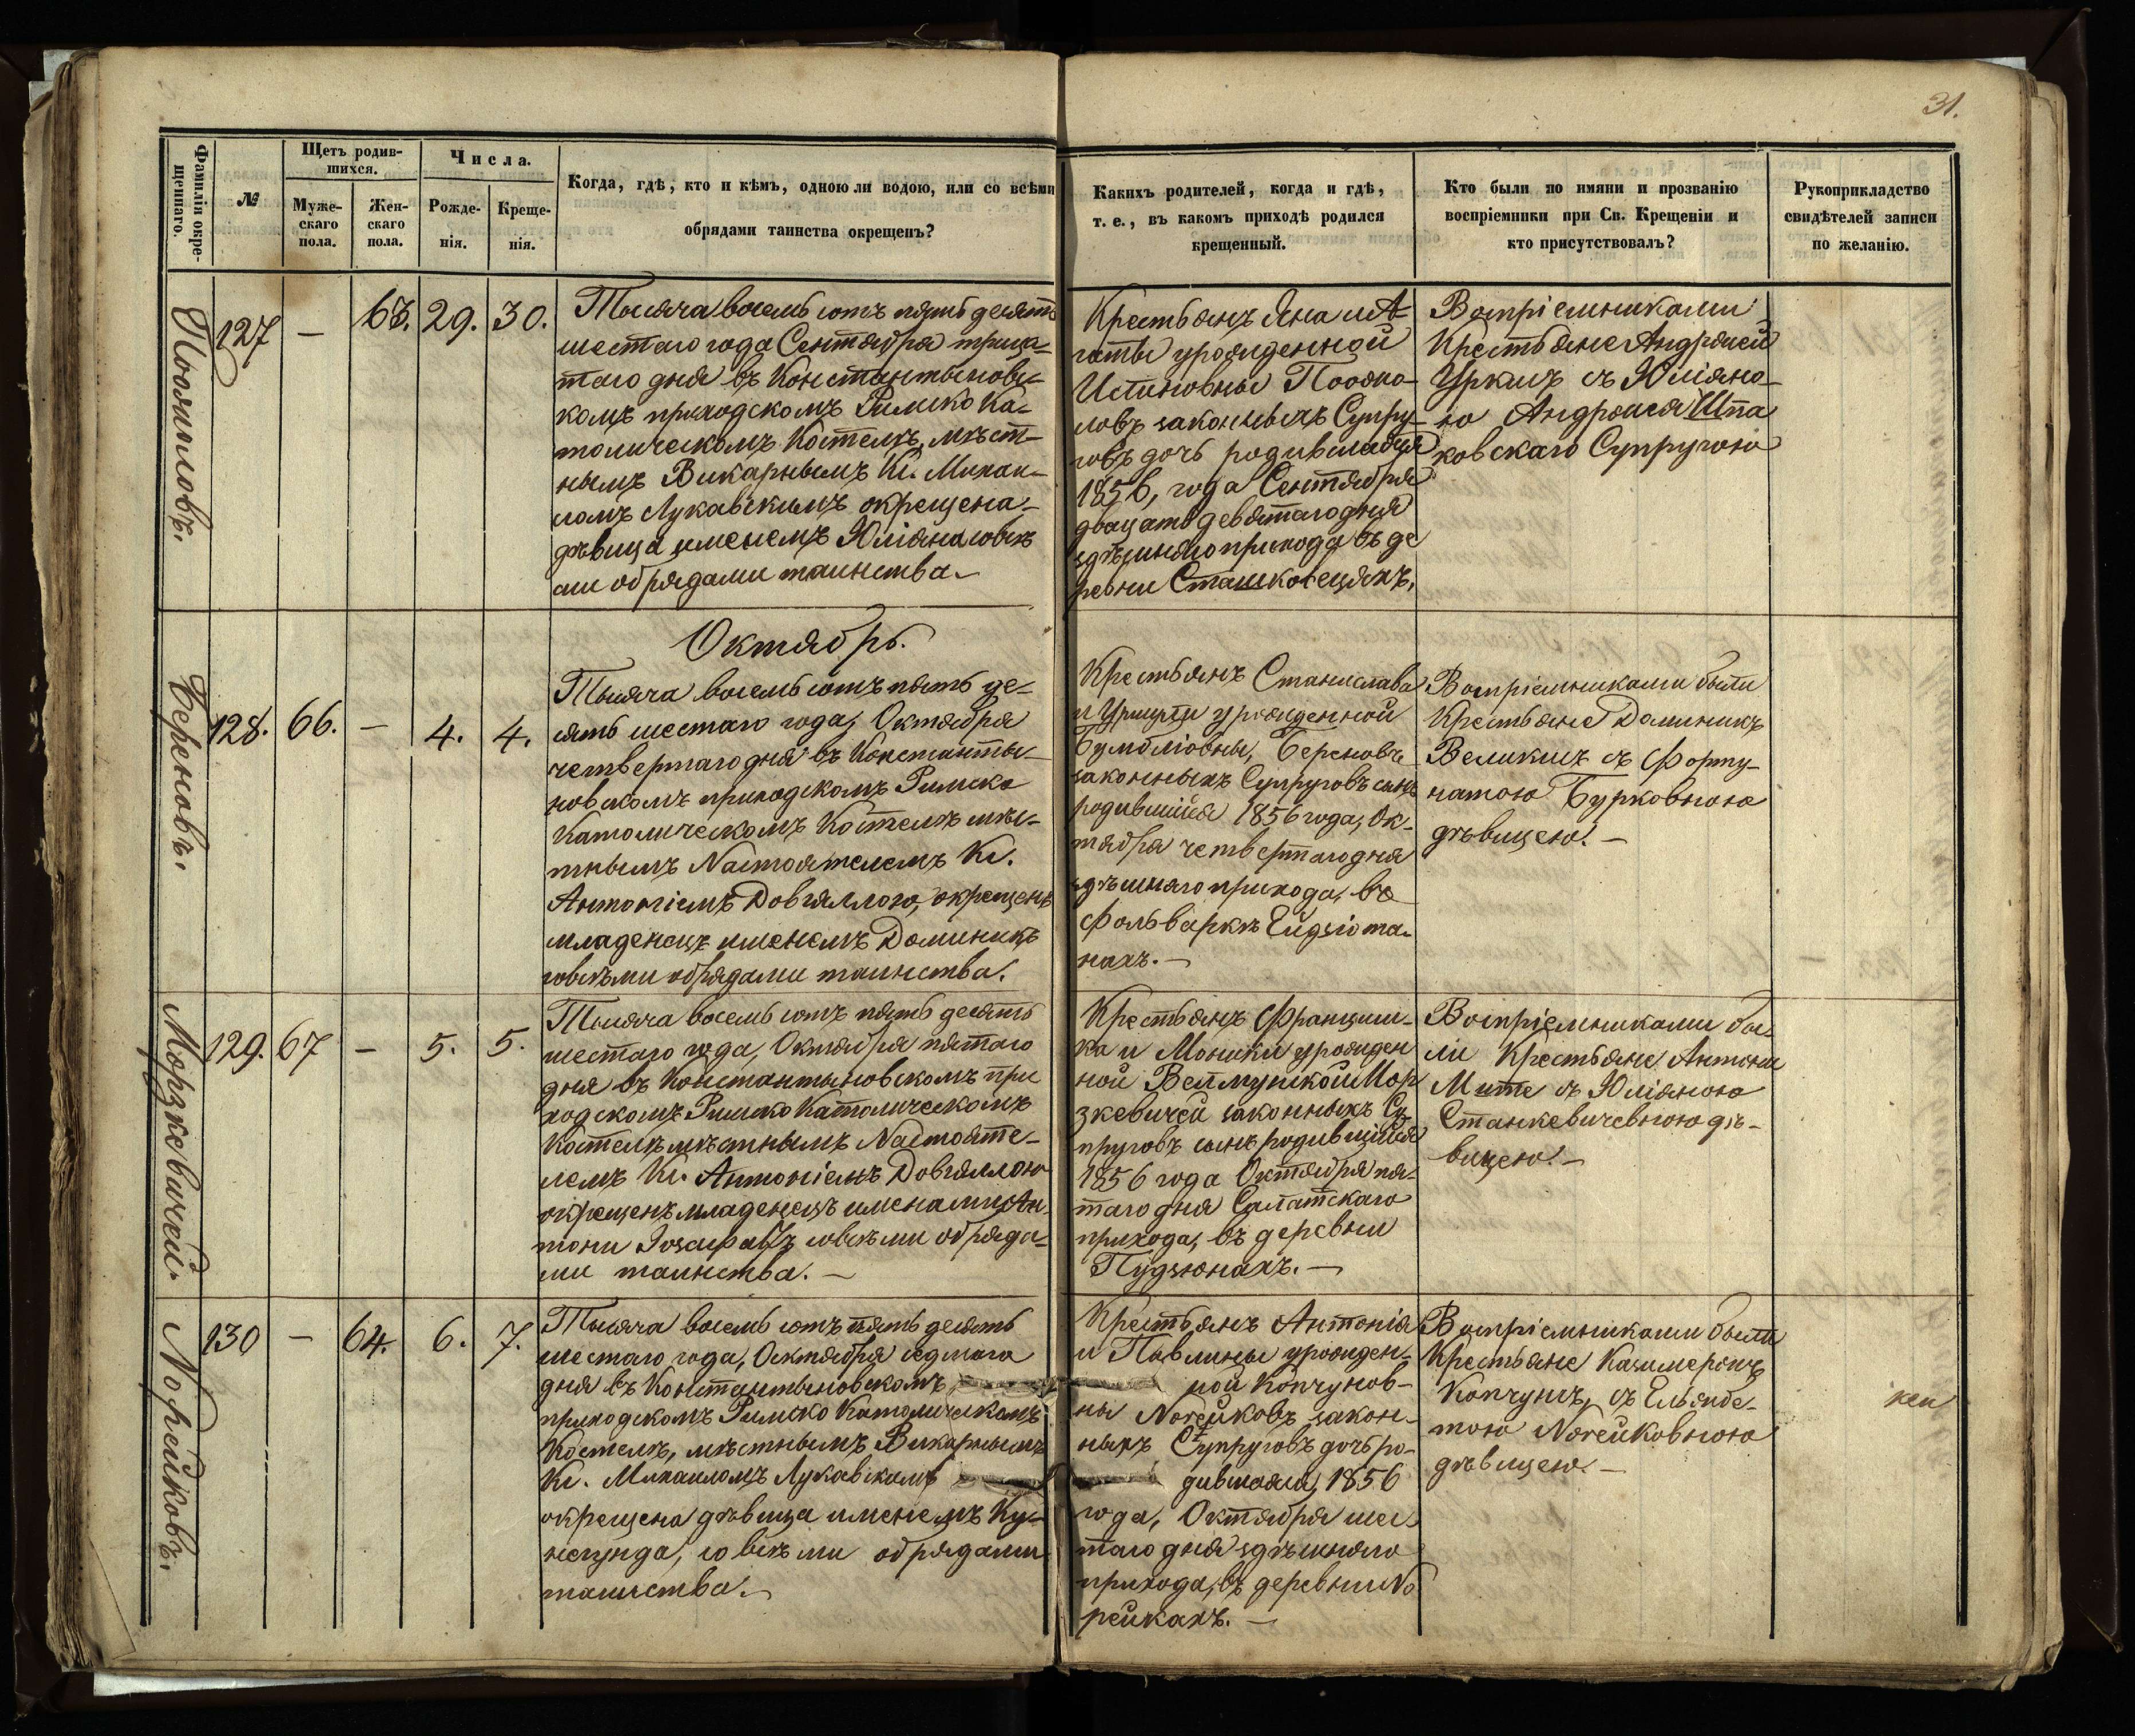 31.
Фамилія окре-
щеннаго.
№
Щетъ родив-
шихся.
Муже-
скаго
пола.
Жен-
скаго
пола.
Числа.
Рожде-
нія.
Креще-
нія.
Когда, гдѣ, кто и кѣмъ, одною ли водою, или со всѣми
обрядами таинства окрещенъ?
Какихъ родителей, когда и гдѣ,
т. е., въ какомъ приходѣ родился
крещенный.
Кто были по имяни и прозванію
воспріемники при Св. Крещеніи и
кто присутствовалъ?
Рукоприкладство
свидѣтелей записи
по желанію.
127
—
63.
29.
30.
Тысяча восемь сотъ пять десятъ
шестаго года Сентября трица-
таго дня въ Константиновс-
комъ приходскомъ Римско Ка-
толическомъ Костелѣ, мѣст-
нымъ Викарнымъ Кс. Михаи-
ломъ Лукавскимъ окрещена
дѣвица именемъ Юліяна совсѣ
ми обрядами таинства.
Крестьянъ Яна и А-
гаты урожденной
ловъ законныхъ Супру-
говъ дочь родившаяся
1856, года Сентября
двацать девятаго дня
здѣшняго прихода въ де
ревни
Воспріемниками
Крестьяне Андржей
съ Юліяно-
ю Андржея Шпа
ковскаго Супругою
Октябрь.
Береновъ.
128.
66.
—
4.
4.
Тысяча восемь сотъ пять де-
сять шестаго года, Октября
четвертаго дня въ Константи-
новскомъ приходскомъ Римско
Католическомъ Костелѣ мѣс-
тнымъ Настоятелемъ Кс.
Антоніемъ Довгялло́ю, окрещенъ
младенецъ именемъ Доминикъ
совсѣми обрядами таинства.
Крестьянъ Станислава
и Уршули урожденной
Береновъ
законныхъ Супруговъ сынъ
родившійся 1856 года, Ок-
тября четвертаго дня
здѣшняго прихода, въ
Фольваркѣ Ейдзіота-
нахъ. —
Воспріемниками были
Крестьяне Доминикъ
Великисъ съ Форту-
натою Бурковною
дѣвицею. —
Морзкевичей.
129.
67
—
5.
5.
Тысяча восемь сотъ пять десять
шестаго года, Октября пятаго
дня въ Константиновскомъ при
ходскомъ Римско Католическомъ
Костелѣ мѣстнымъ Настояте-
лемъ Кс. Антоніемъ Довгяллою
окрещенъ младенецъ именами Ан-
тони Іозафатъ совсѣми обряда-
ми таинства. —
Крестьянъ Францишка
ка и Моники урожден
ной Мор
зкевичей законныхъ Су-
пруговъ сынъ родившійся
1856 года Октября пя-
таго дня Салатскаго
прихода, въ деревни
Пудзюнахъ. —
Воспріемниками бы-
ли Крестьяне Антони
Мите съ Юліяною
Станкевичевною дѣ-
вицею. —
Норейковъ.
130
—
64.
6.
7.
Тысяча восемь сотъ пять десять
шестаго года, Октября седмаго
дня въ Константиновскомъ
приходскомъ Римско Католическомъ
Костелѣ, мѣстнымъ Викарнымъ
Кс. Михаиломъ Лукавскимъ
окрещена дѣвица именемъ Ку-
негунда, совсѣми обрядами
таинства. —
Крестьянъ Антонія
и Павлины урожден-
ной Копчунов-
ны Норейковъ закон-
ныхъ Супруговъ дочь ро-
дившаяся, 1856
года, Октября шес-
таго дня здѣшняго
прихода, въ деревни Но
рейкахъ. —
Воспріемниками были
Крестьяне Казимержъ
Копчунъ, съ Ельжбе-
тою Норейковною
дѣвицею. —